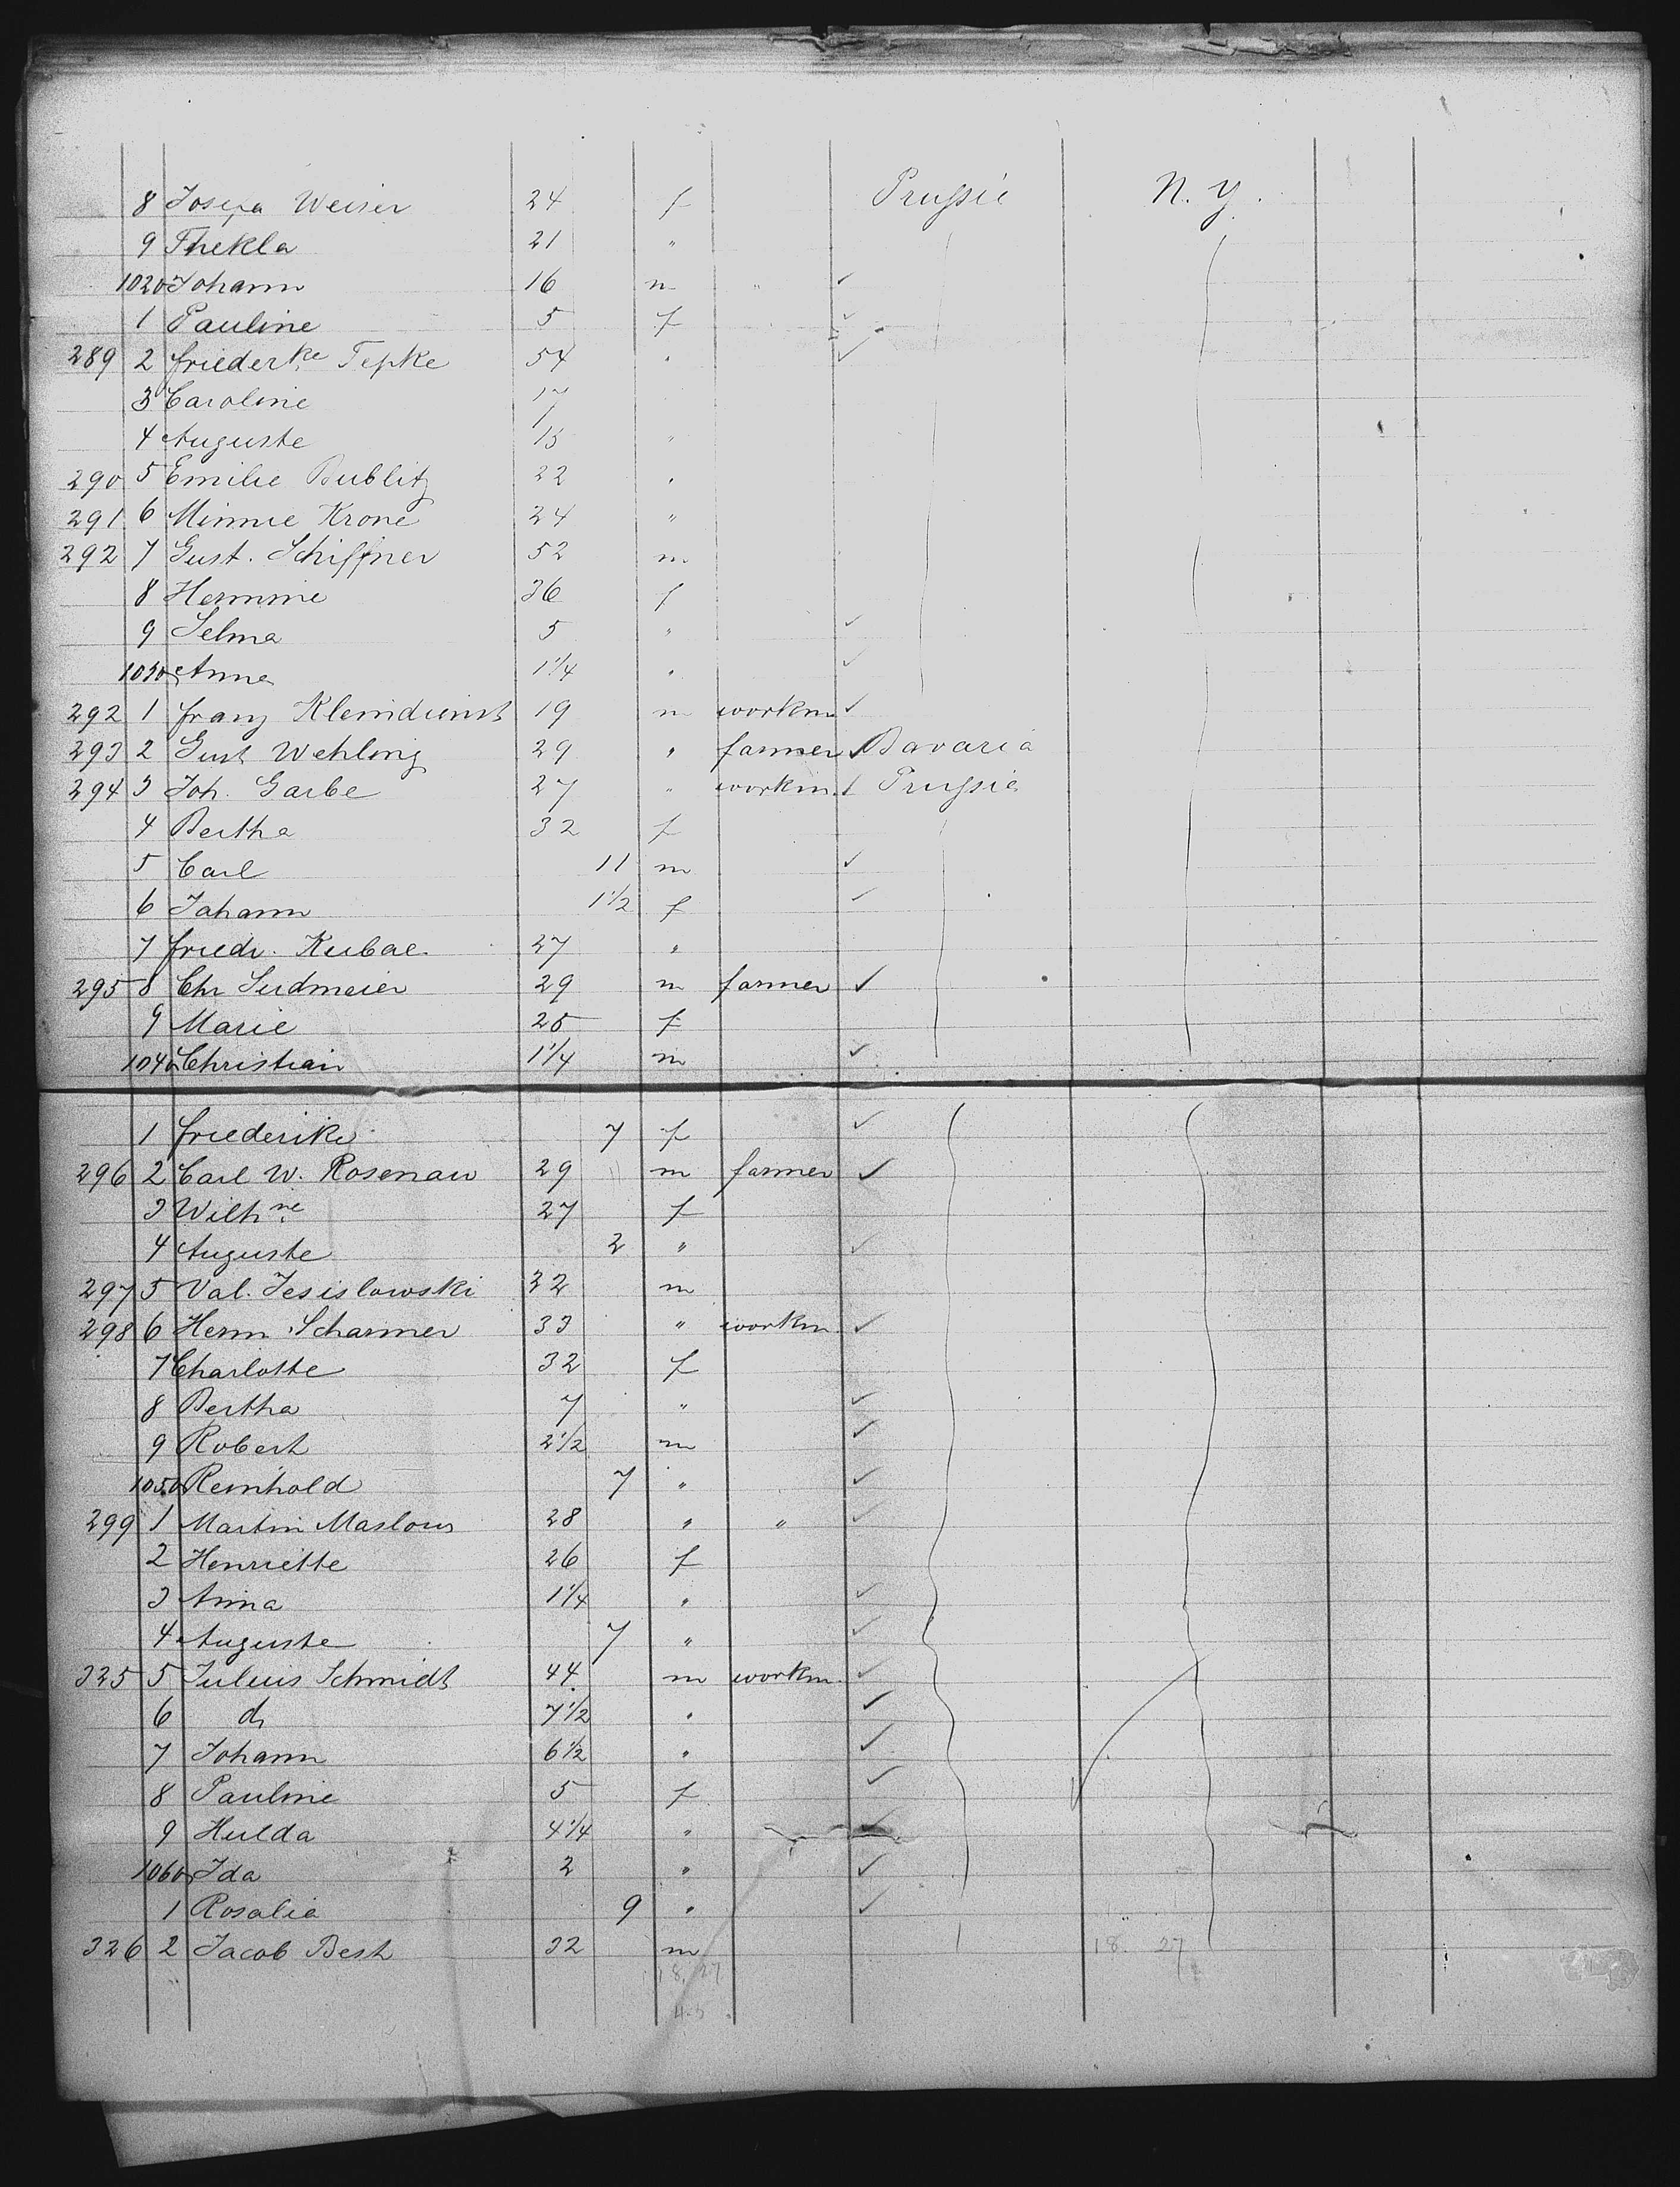 8 Josepa Weiser 24 f Prussia N. Y.
9 Thekla 21 "
1020 Johann 16 m " ✓
1 Pauline 5 f ✓
289 2 Friederke Tepke 54 " ✓
3 Caroline 17
4 Auguste 15 "
290 5 Emilie Bublitz 22 "
291 6 Minnie Krone 24 "
292 7 Gust. Schiffner 52 m
8 Hermine 36 f
9 Selma 5 " ✓
1030 Anna 1 1/4 " ✓
292 1 Franz Kleindienst 19 m workm ✓
293 2 Gust Wehling 29 " farmer ✓ Bavaria
294 3 Joh. Garbe 27 " workm. ✓ Prussia
4 Bertha 32 f
5 Carl 11 m ✓
6 Johann 1 1/2 f ✓
7 Friedr. Kubae 27 "
295 8 Chr Sudmeier 29 m farmer ✓
9 Marie 25 f
1040 Christian 1 1/4 m ✓
1 Friederike 7 f ✓
296 2 Carl W. Rosenau 29 m farmer ✓
3 Wilhne 27 f
4 Auguste 2 " ✓
297 5 Val. Jesislowski 32 m
298 6 Herm Scharmer 33 " workm. ✓
7 Charlotte 32 f
8 Bertha 7 " ✓
9 Robert 2 1/2 m ✓
1050 Reinhold 7 " ✓
299 1 Martin Maslow 28 " " ✓
2 Henriette 26 f
3 Anna 1 1/4 " ✓
4 Auguste 7 " ✓
325 5 Julius Schmidt 44 m workm. ✓
6 do 7 1/2 " ✓
7 Johann 6 1/2 " ✓
8 Pauline 5 f ✓
9 Hulda 4 1/4 " ✓
1060 Ida 2 " ✓
1 Rosalie 9 " ✓
326 2 Jacob Besh 32 m 18. 27
18. 27